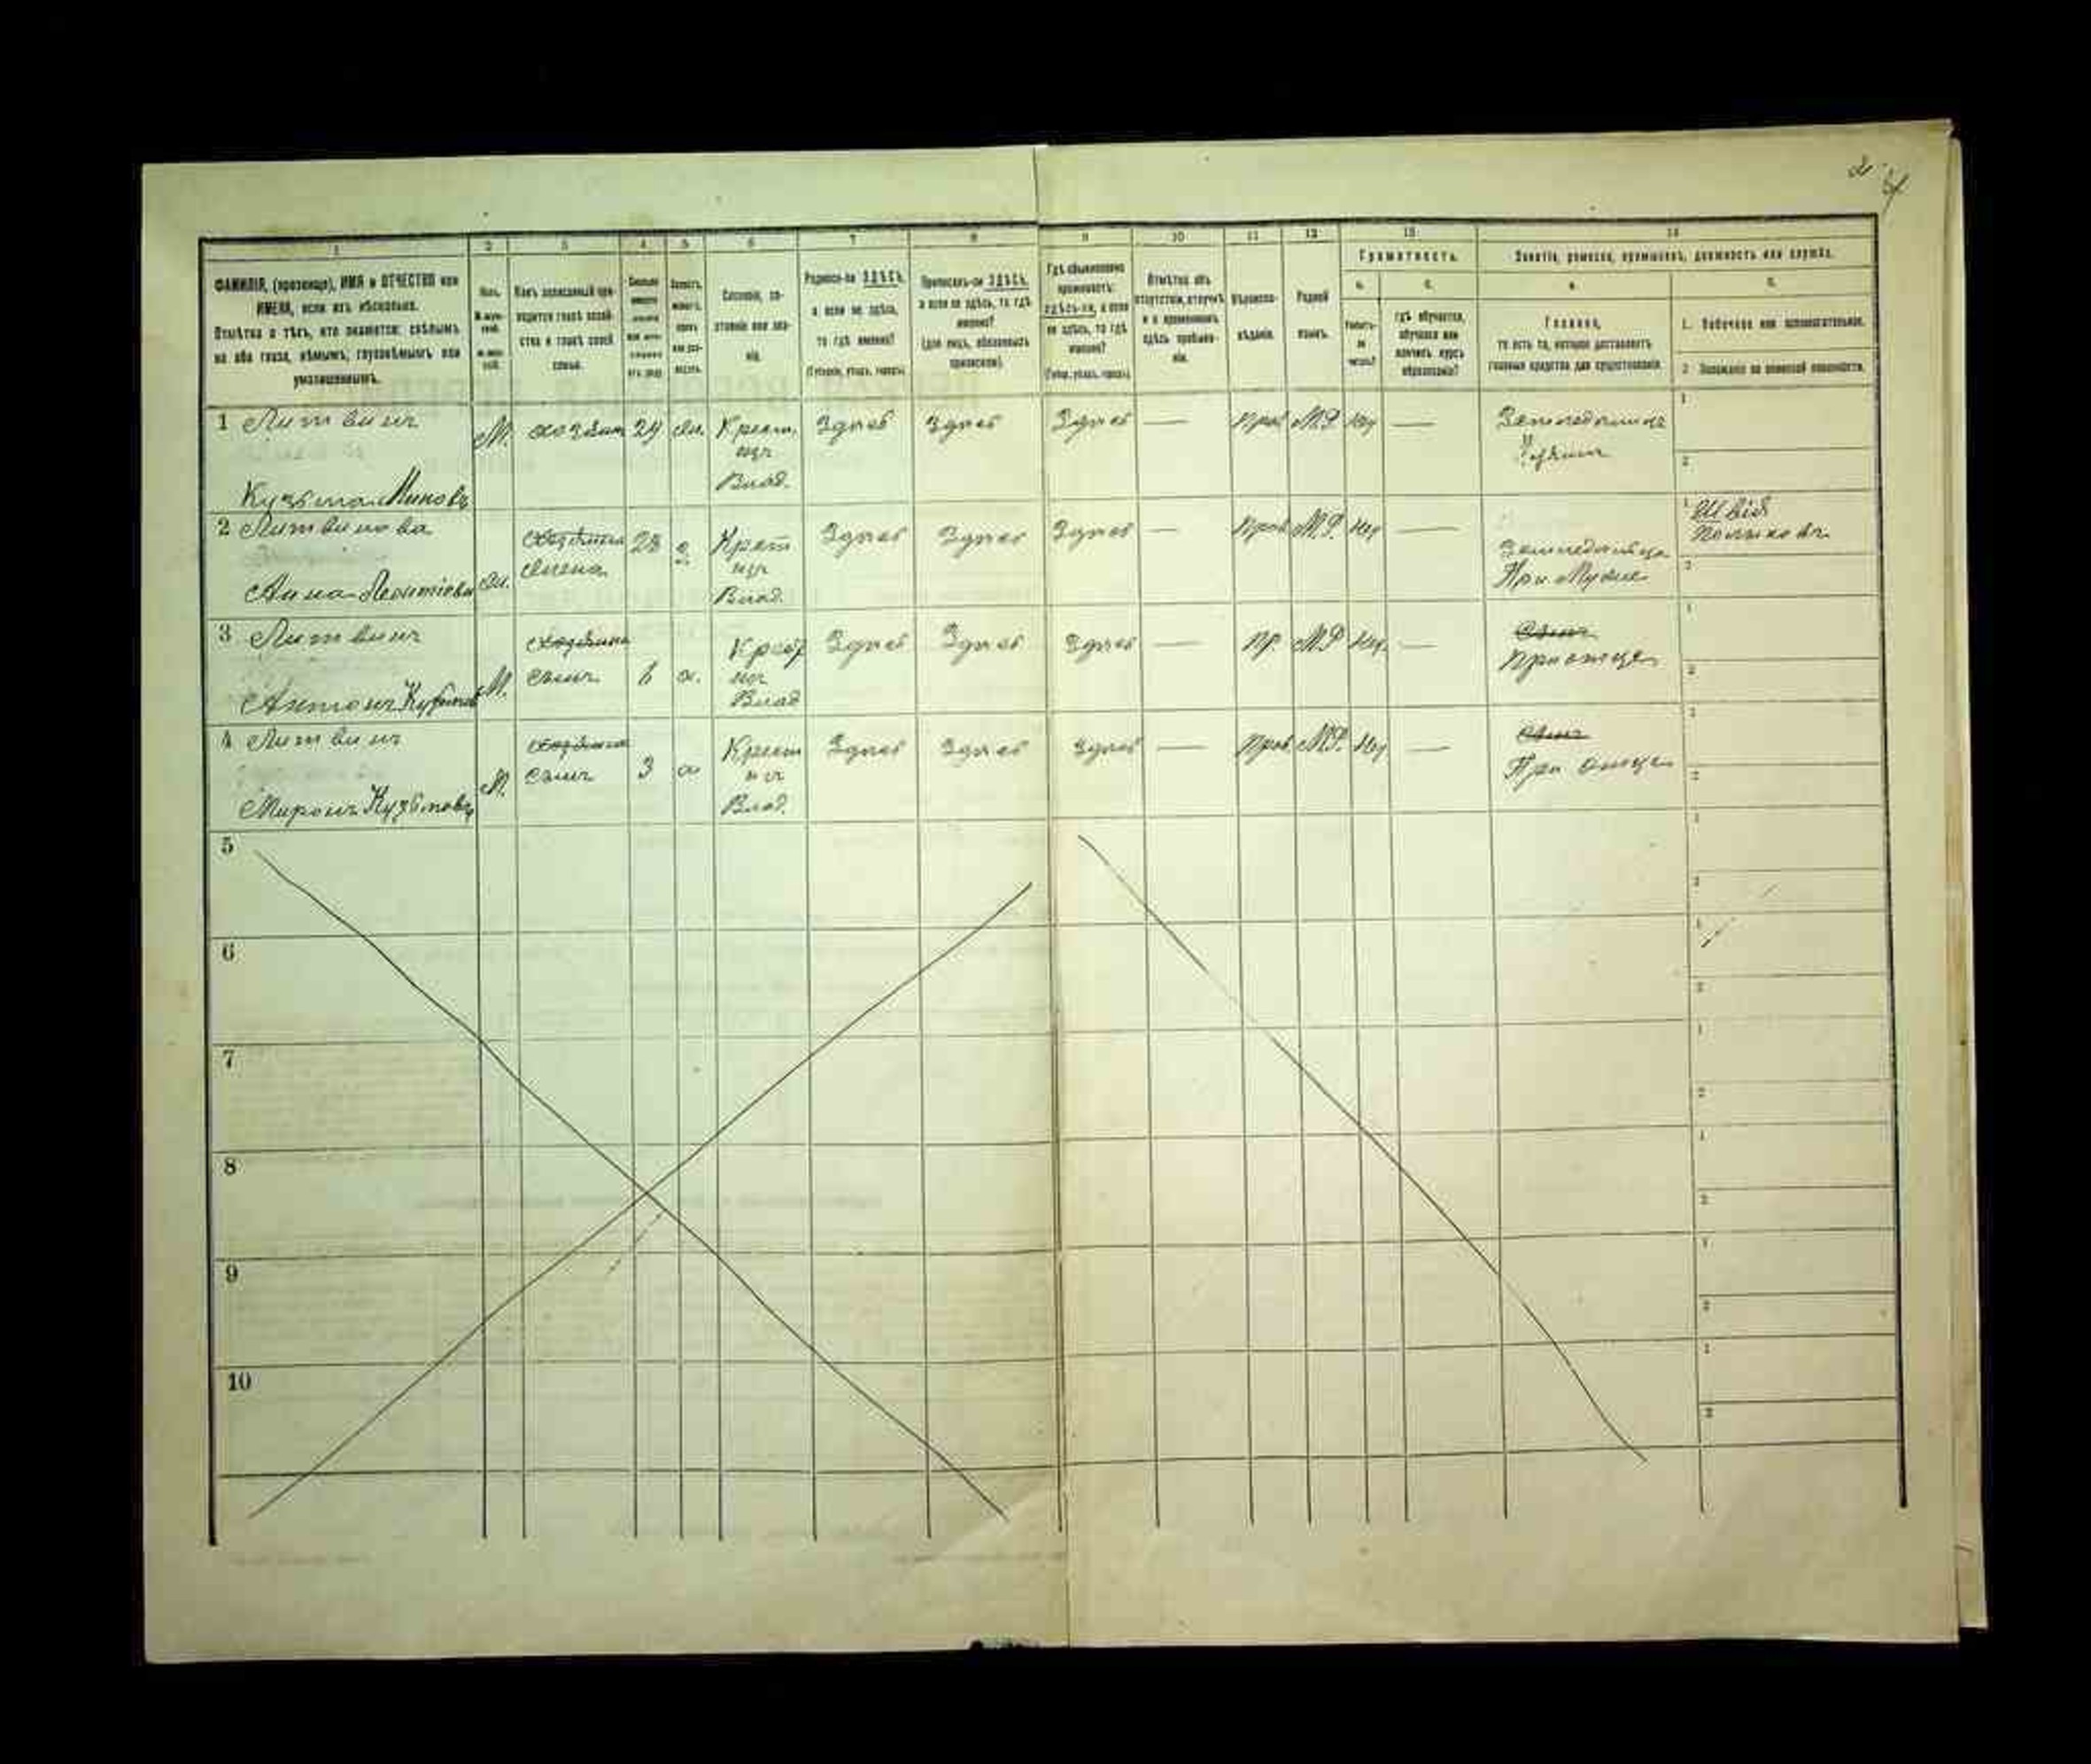 1 2 3 4 5 6 7 8 9 10 11 12 13 14
ФАМИЛІЯ, (прозвище), ИМЯ и ОТЧЕСТВО или
ИМЕНА, если ихъ нѣсколько.
Отмѣтка о тѣхъ, кто окажется: слѣпымъ
на оба глаза, нѣмымъ, глухонѣмымъ или
умалишеннымъ.
Полъ.
Какъ записанный при-
ходится главѣ хозяй-
ства и главѣ своей
семьи.
Сословіе, со-
стояніе или зва-
ніе.
Родился-ли ЗДѢСЬ,
а если не здѣсь,
то гдѣ именно?
(Губернія, уѣздъ, городъ)
Приписанъ-ли ЗДѢСЬ,
а если не здѣсь, то гдѣ
именно?
(для лицъ, обязанныхъ
припискою).
Гдѣ обыкновенно
проживаетъ:
здѣсь-ли, а если
не здѣсь, то гдѣ
именно?
(Губер. уѣздъ, городъ)
Отмѣтка объ
отсутствіи, отлучкѣ
и о временномъ
здѣсь пребыва-
ніи.
Вѣроиспо-
вѣданіе.
Родной
языкъ.
Грамотность.
а.
Умѣетъ-
ли
читать?
б.
гдѣ обучается,
обучался или
кончилъ курсъ
образованія?
Занятіе, ремесло, промыселъ, должность или служба.
а.
Главное,
то есть то, которое доставляетъ
главныя средства для существованія.
б.
1. Побочное или вспомогательное.
2. Положеніе по воинской повинности.
1 Литвинъ
Кузьма Миновъ
М. хозяинъ 29 Крест.
изъ
Влад.
Здѣсь Здѣсь Здѣсь — Прав М.Р нѣт —
Земледѣлецъ
1
2
2 Литвинова
Анна Леонтіева
хозяина
жена
28 Крест
изъ
Влад.
Здѣсь Здѣсь Здѣсь — Прав М.Р. нѣт —
При Мужѣ
1
2
3 Литвинъ
Антонъ Кузьмовъ
М. хозяина
сынъ
6 х. Крест
изъ
Влад
Здѣсь Здѣсь Здѣсь — Пр. М.Р нѣт. —
Сынъ
При отцѣ
1
2
4 Литвинъ
Миронъ Кузьмовъ
М. хозяина
сынъ
3 х Крест
изъ
Влад.
Здѣсь Здѣсь Здѣсь — Прав. М.Р. нѣт —
Сынъ
При отцѣ
1
2
5
1
2
6
1
2
7
1
2
8
1
2
9
1
2
10
1
2